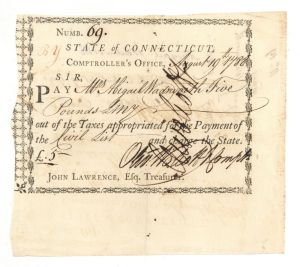 NUMB. 69.
STATE of CONNECTICUT,
COMPTROLLER'S OFFICE, August 19th 1788
SIR,
PAY Mr Five
Pounds
out of the Taxes appropriated for the Payment of
the Civil List and charge the State.
£.5
JOHN LAWRENCE, Esq. Treasurer.